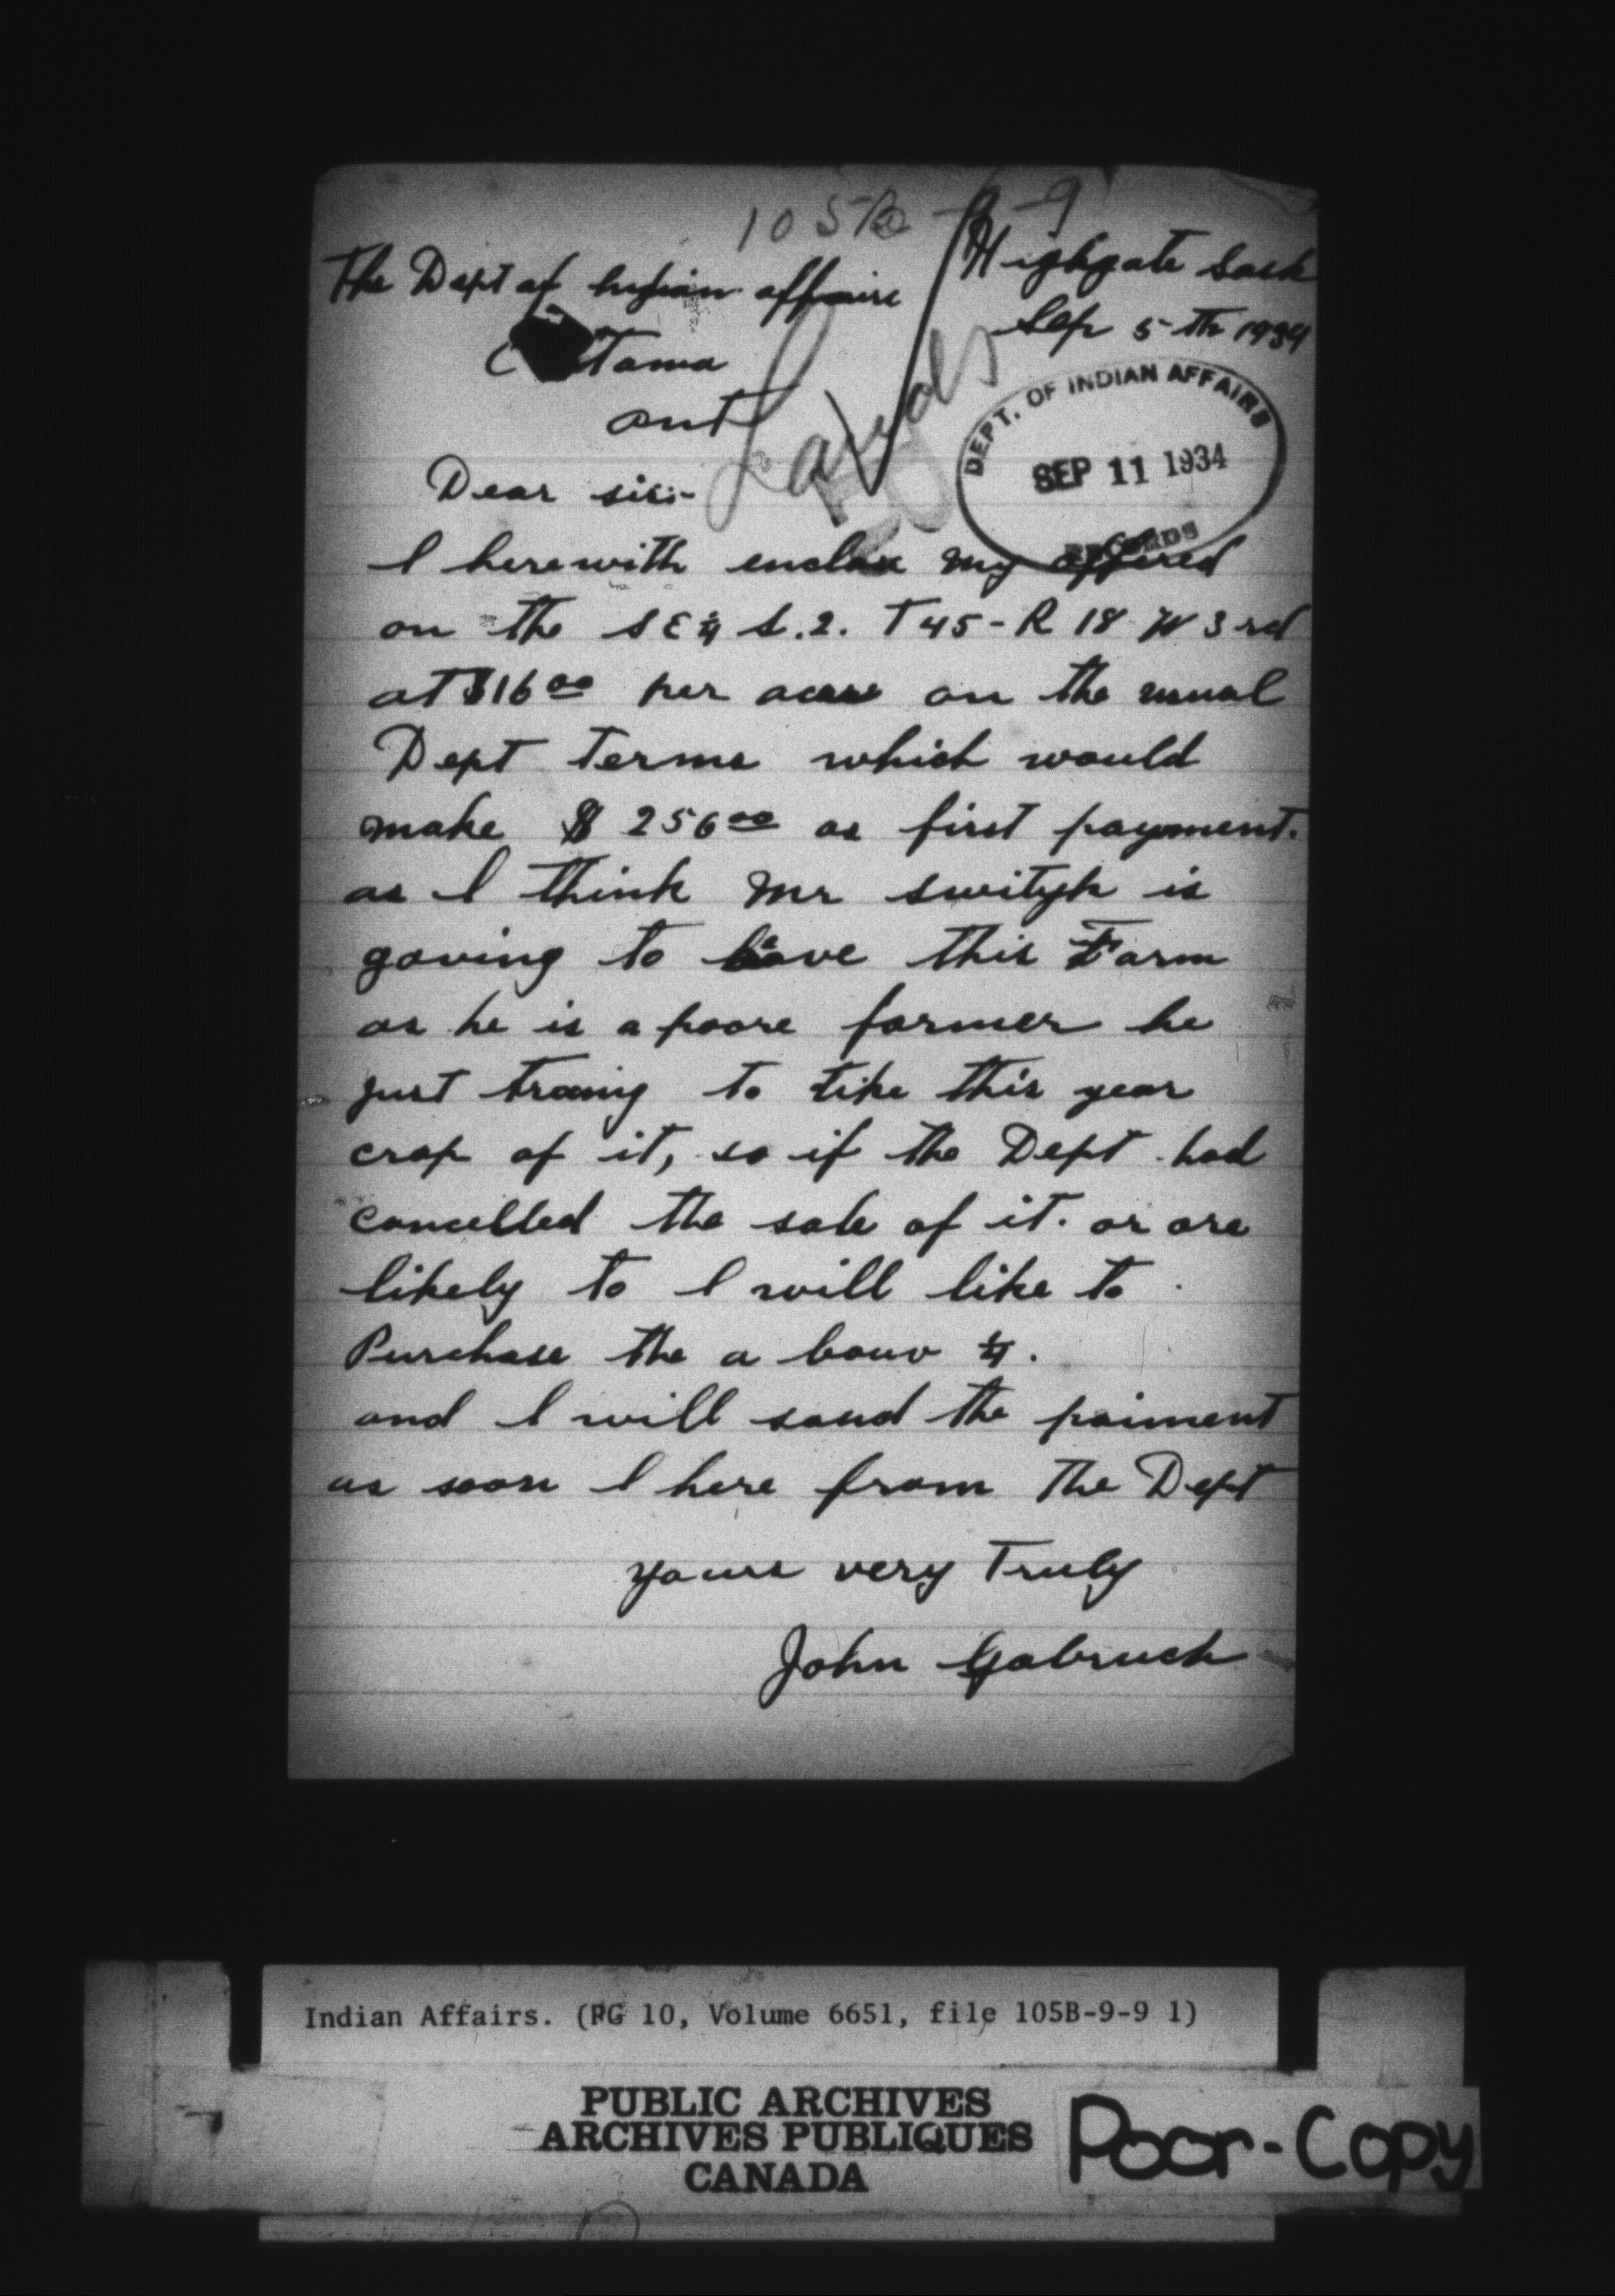 105B-9-9
Highgate Sask
The Dept of Indian affairs
Sep 5th 1934
Ottawa
ont
Lands
DEPT. OF INDIAN AFFAIRS
SEP 11 1934
RECORDS
Dear sir:-
I herewith enclose my offered
on the SE¼ S.2. T45-R 18 W 3rd
at $16 00 per acre on the usual
Dept terms which would
make $ 256 00 as first payment.
as I think Mr swityk is
gouing to leave this Farm
as he is a poore farmer he
just traing to tike this year
crop of it, so if the Dept had
cancelled the sale of it. or are
likely to I will like to
Purchase the a bouv ¼.
and I will sand the paiment
as soon I here from the Dept
yours very Truly
John Gabruch
Indian Affairs. (RG 10, Volume 6651, file 105B-9-9 1)
PUBLIC ARCHIVES
ARCHIVES PUBLIQUES
CANADA
Poor-Copy